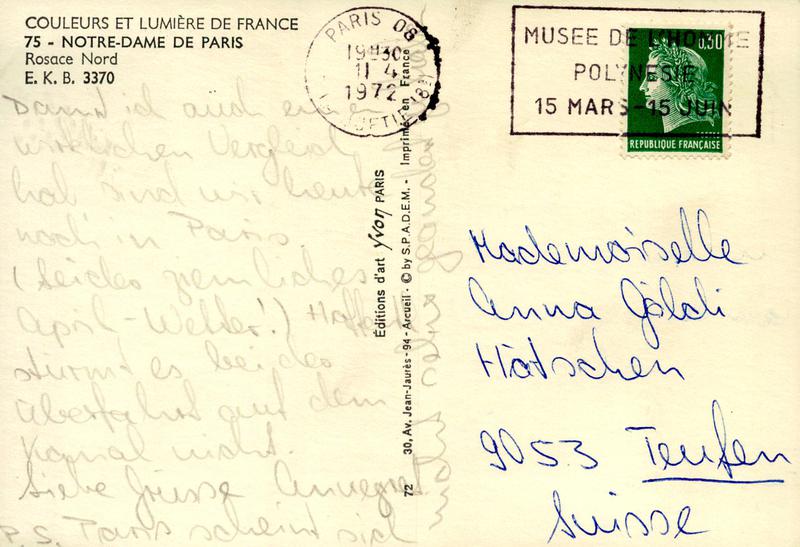 COULEURS ET LUMIÈRE DE FRANCE
75 - NOTRE-DAME DE PARIS
Rosace Nord
E. K. B. 3370
Damit ich auch einen
wirklichen Vergleich
hab sind wir heute
noch in Paris.
(Leider ziemliches
April-Wetter!) Hoffentl
stürmt es bei der
Überfahrt auf dem
Kanal nicht.
Liebe Grüsse Annegret
P.S. Paris scheint sich
nicht sehr geändert
Éditions d'art Yvon PARIS
72 30, Av. Jean-Jaurès-94-Arcueil - © by S.P.A.D.E.M. - Imprimé en France
PARIS 08
19H30
11-4
1972
MUSEE DE L'HOMME
POLYNESIE
15 MARS-15 JUIN
0,30
REPUBLIQUE FRANÇAISE
Mademoiselle
Anna Göldi
Hätschen
9053 Teufen
Suisse